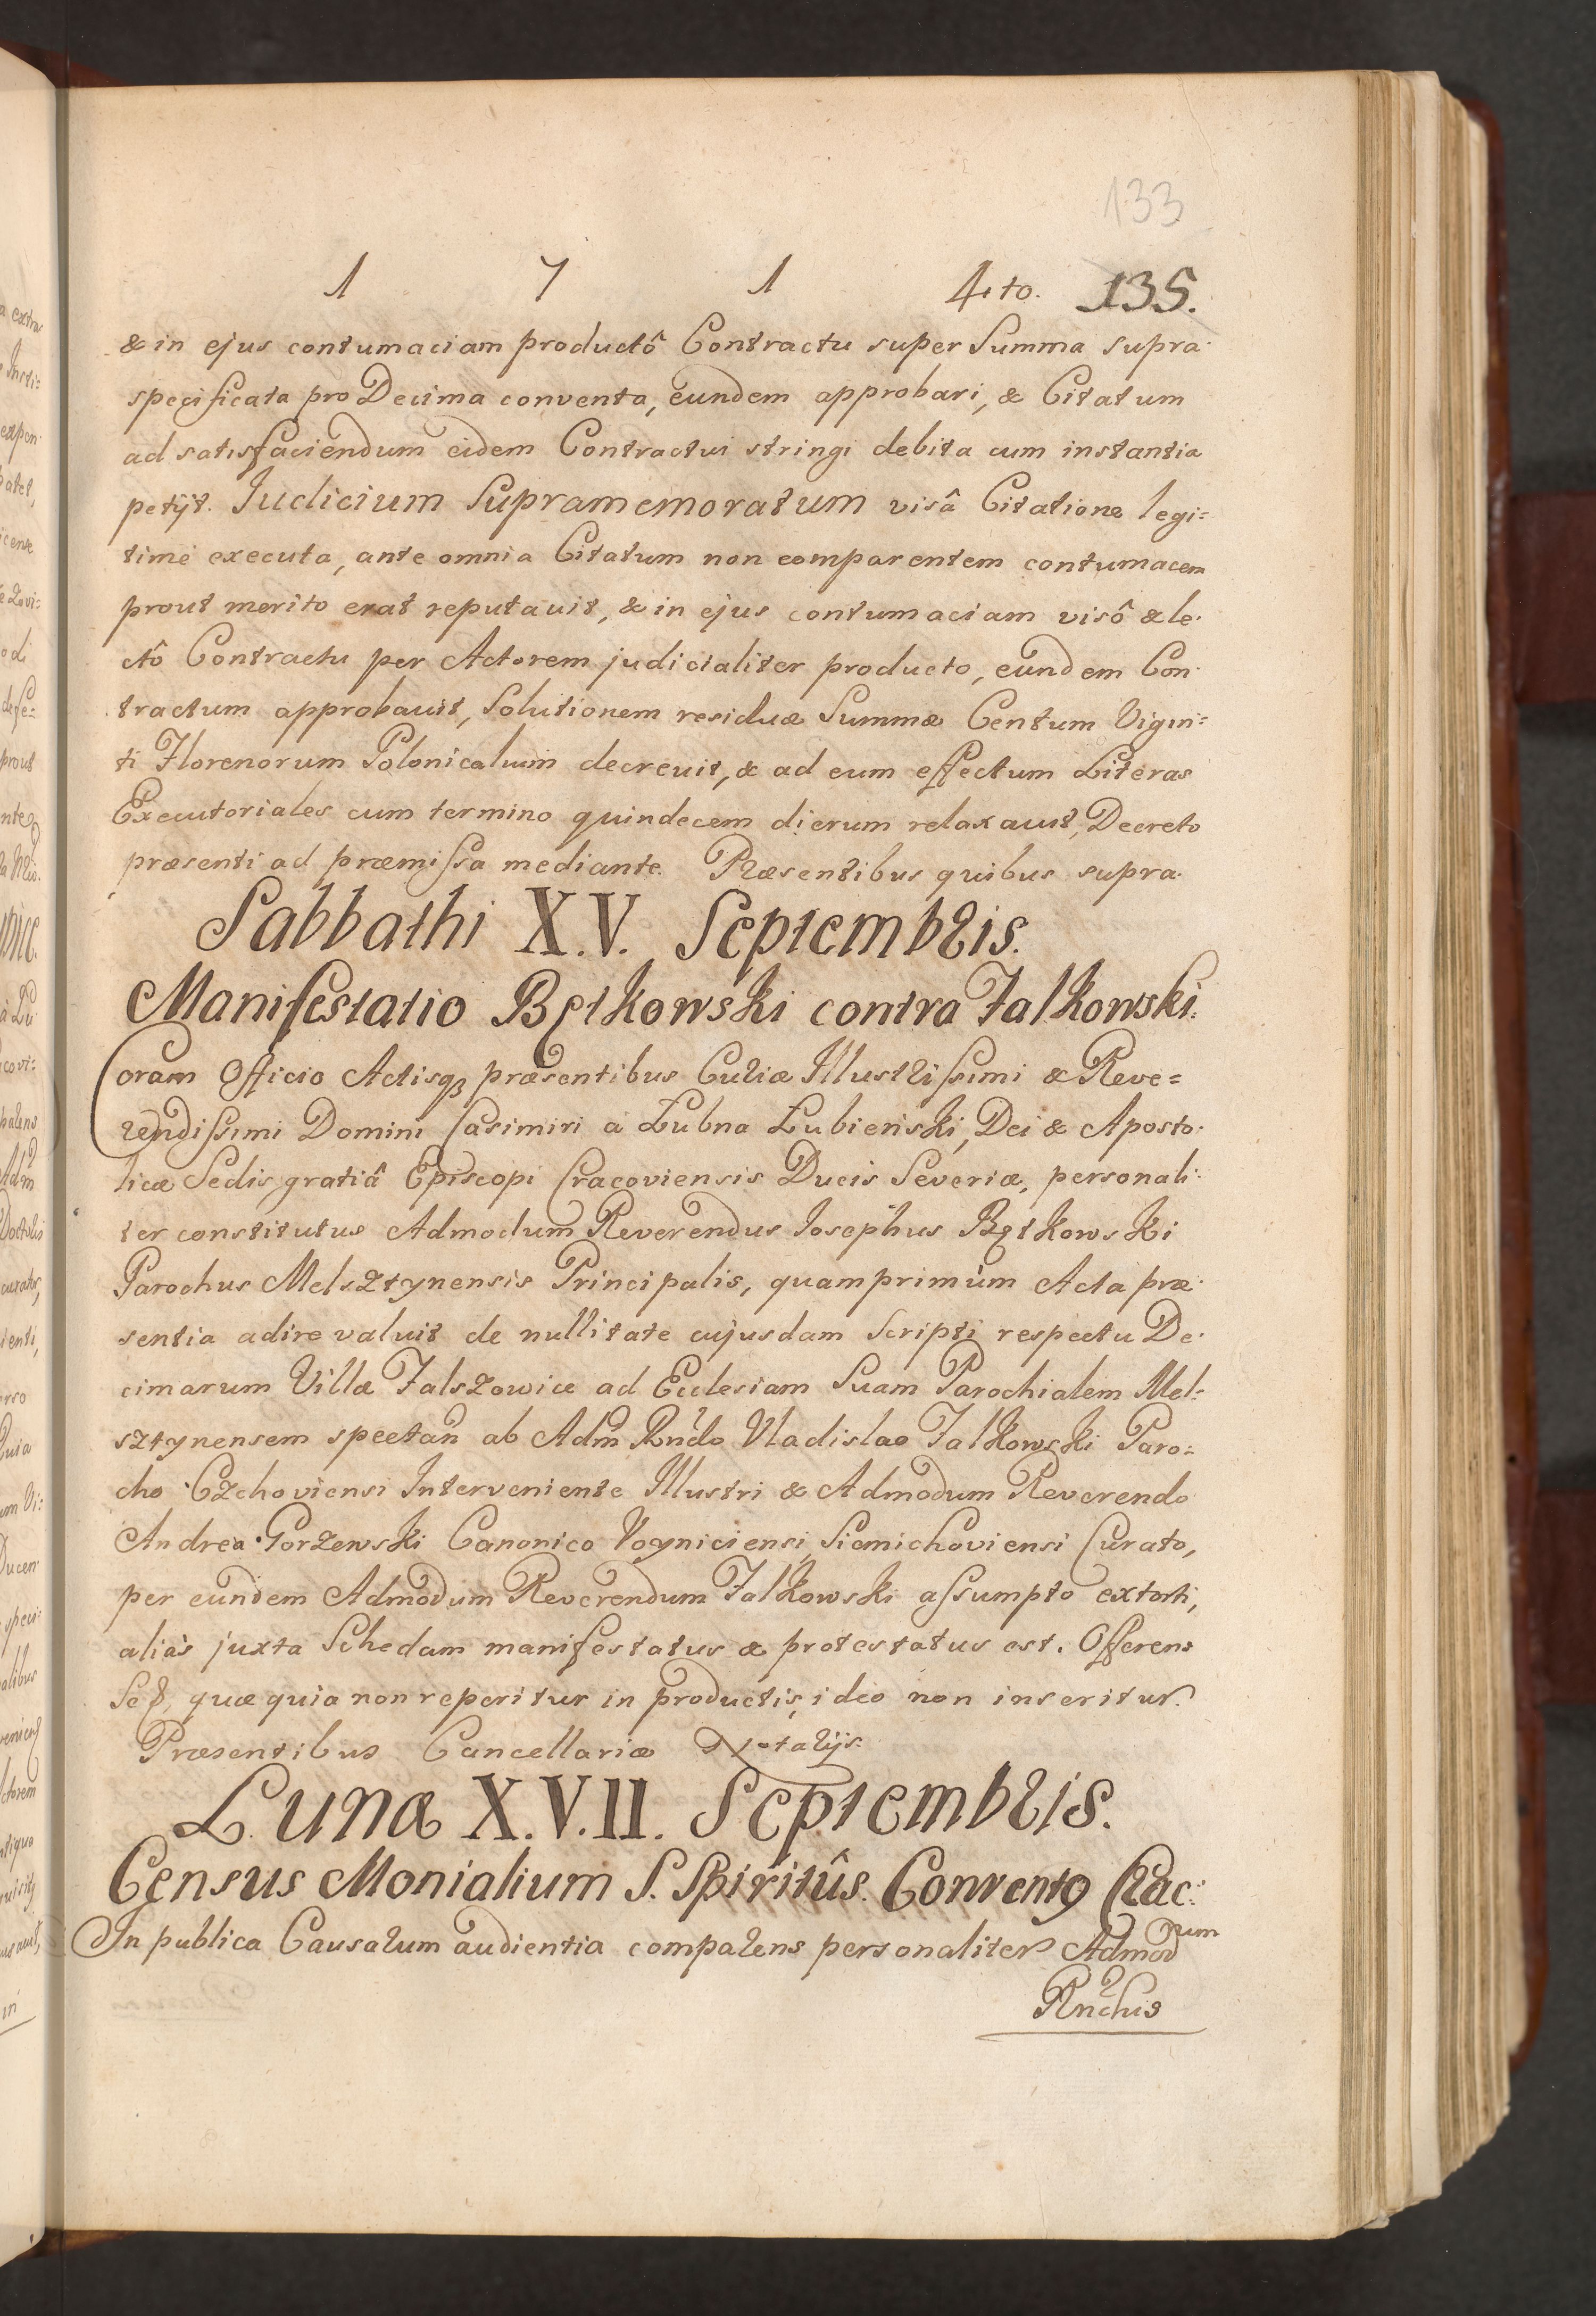 133
1 7 1 4to. 135.
& in ejus contumaciam productô Contractu super Summa supra
specificata pro Decima conventa, eundem approbari, & Citatum
ad satisfaciendum eidem Contractui stringi debita cum instantia
petÿt. Judicium Supramemoratum visâ Citatione legi=
timè executa, ante omnia Citatum non comparentem contumacem
prout merito erat reputavit, & in ejus contumaciam visô & le-
ctô Contractu per Actorem judicialiter producto, eundem Con-
tractum approbavit, Solutionem residuæ Summæ Centum Vigin=
ti Florenorum Polonicalium decrevit, & ad eum effectum Literas
Executoriales cum termino quindecem dierum relaxavit, Decreto
præsenti ad præmissa mediante. Præsentibus quibus supra.
Sabbathi X.V. Septembris.
Manifestatio Bętkowski contra Falkowski.
Coram Officio Actisq; præsentibus Curiæ Illustrissimi & Reve=
rendissimi Domini Casimiri à Łubna Łubieński, Dei & Aposto-
licæ Sedis gratiâ Episcopi Cracoviensis Ducis Severiæ, personali-
ter constitutus Admodum Reverendus Josephus Bętkowski
Parochus Melsztynensis Principalis, quamprimùm Acta præ-
sentia adire valuit de nullitate cujusdam Scripti respectu De-
cimarum Villæ Falszowice ad Ecclesiam Suam Parochialem Mel-
sztynensem spectan ab Adm Rndo Vladislao Falkowski Paro=
cho Czchoviensi Interveniente Illustri & Admodum Reverendo
Andrea Gorzewski Canonico Voyniciensi, Siemichoviensi Curato,
per eundem Admodum Reverendum Falkowski assumpto extorti,
aliàs juxta Schedam manifestatus & protestatus est. Offerens
Se quæ quia non reperitur in productis, ideo non inseritur.
Præsentibus Cancellariæ Notarijs.
Lunæ X.V.II. Septembris.
Census Monialium S. Spiritûs. Convent9 Crac:
In publica Causarum audientia comparens personaliter Admodum
Rndus